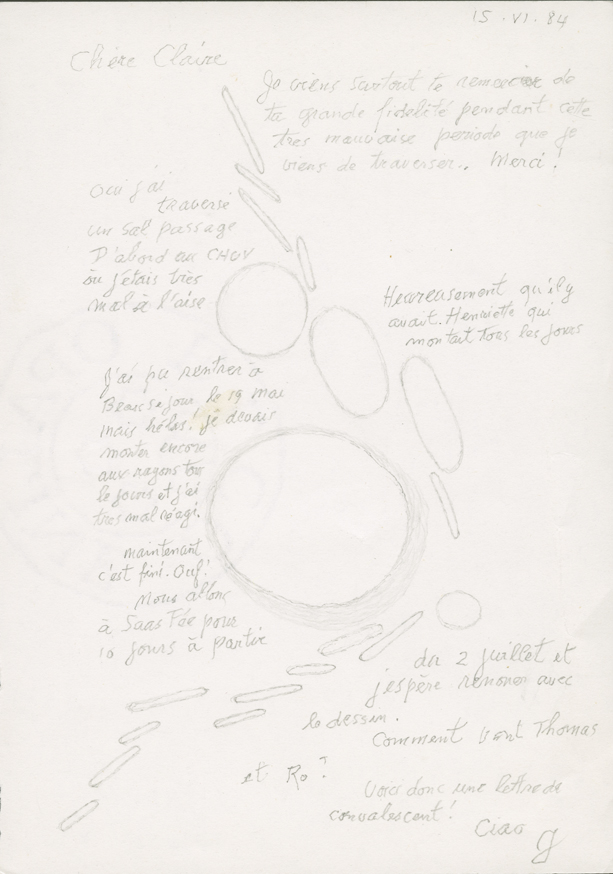 15. VI. 84
Chère Claire
Je viens surtout te remercier de
ta grande fidelité pendant cette
tres mauvaise periode que je
viens de traverser.. Merci!
Oui j'ai
traversé
un sal passage
D'abord au CHUV
où j'étais très
mal à l'aise
Heureusement qu'il y
avait Henriette qui
montait tous les jours
J'ai pu rentrer à
Beausejour le 19 mai
mais hélas! je devais
monter encore
aux rayons tous
le jours et j'ai
tres mal réagi.
maintenant
c'est fini. Ouf!
Nous allons
à Saas Fée pour
10 jours à partir
du 2 juillet et
j'espère renouer avec
le dessin.
Comment vont Thomas
et Ro?
Voici donc une lettre de
convalescent!
Ciao
G